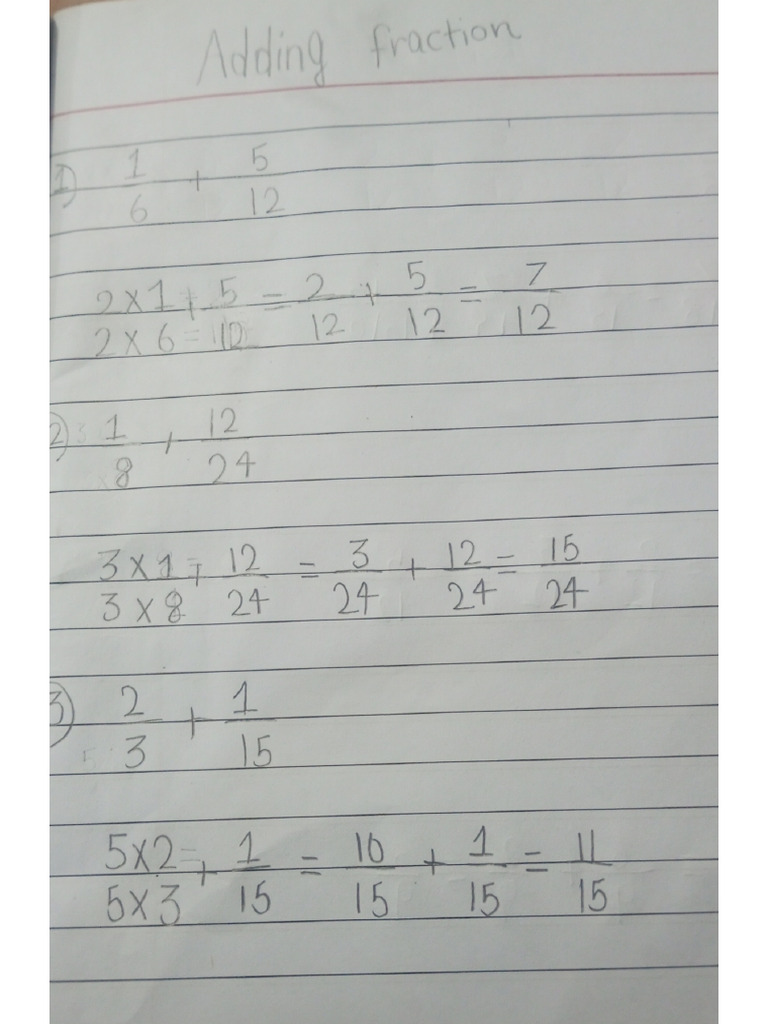 Adding fraction
1) 1/6 + 5/12
2×1/2×6 + 5/12 = 2/12 + 5/12 = 7/12
2) 1/8 + 12/24
3×1/3×8 + 12/24 = 3/24 + 12/24 = 15/24
3) 2/3 + 1/15
5×2/5×3 + 1/15 = 10/15 + 1/15 = 11/15